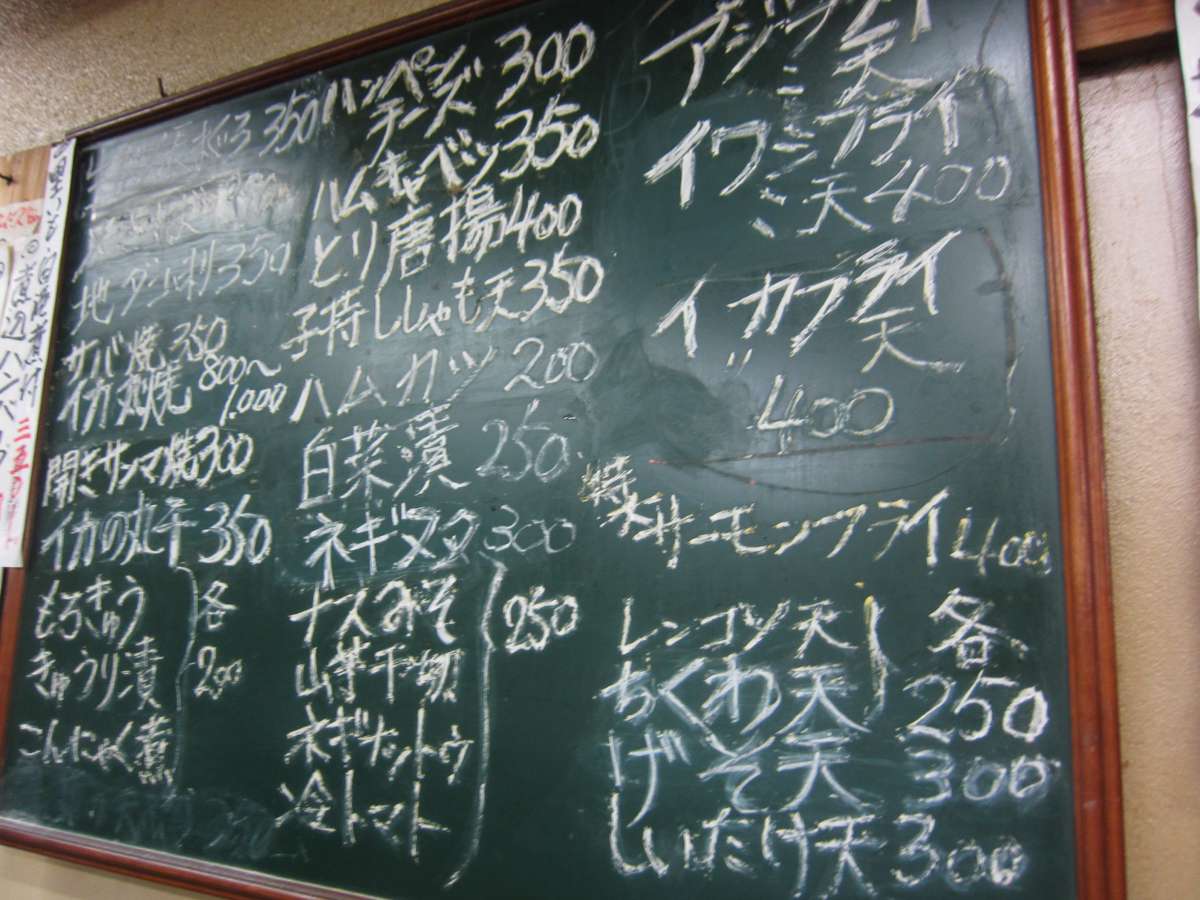 350
地アジ刺350
サバ焼350
イカ丸焼800〜
1,000
開きサンマ焼300
イカの丸干350
もろきゅう
きゅうり漬
こんにゃく煮
各
200
ハンペン
チーズ
300
ハムキャベツ350
とり唐揚400
子持ししゃも天350
ハムカツ 200
白菜漬 250
ネギヌタ300
ナスみそ
山芋千切
ネギナットウ
冷トマト
250
アジフライ
〃天
イワシフライ
〃天400
イカフライ
〃天
400
特大サーモンフライ400
レンコン天
ちくわ天
各
250
げそ天 300
しいたけ天300
◎煮込ハンバーグ